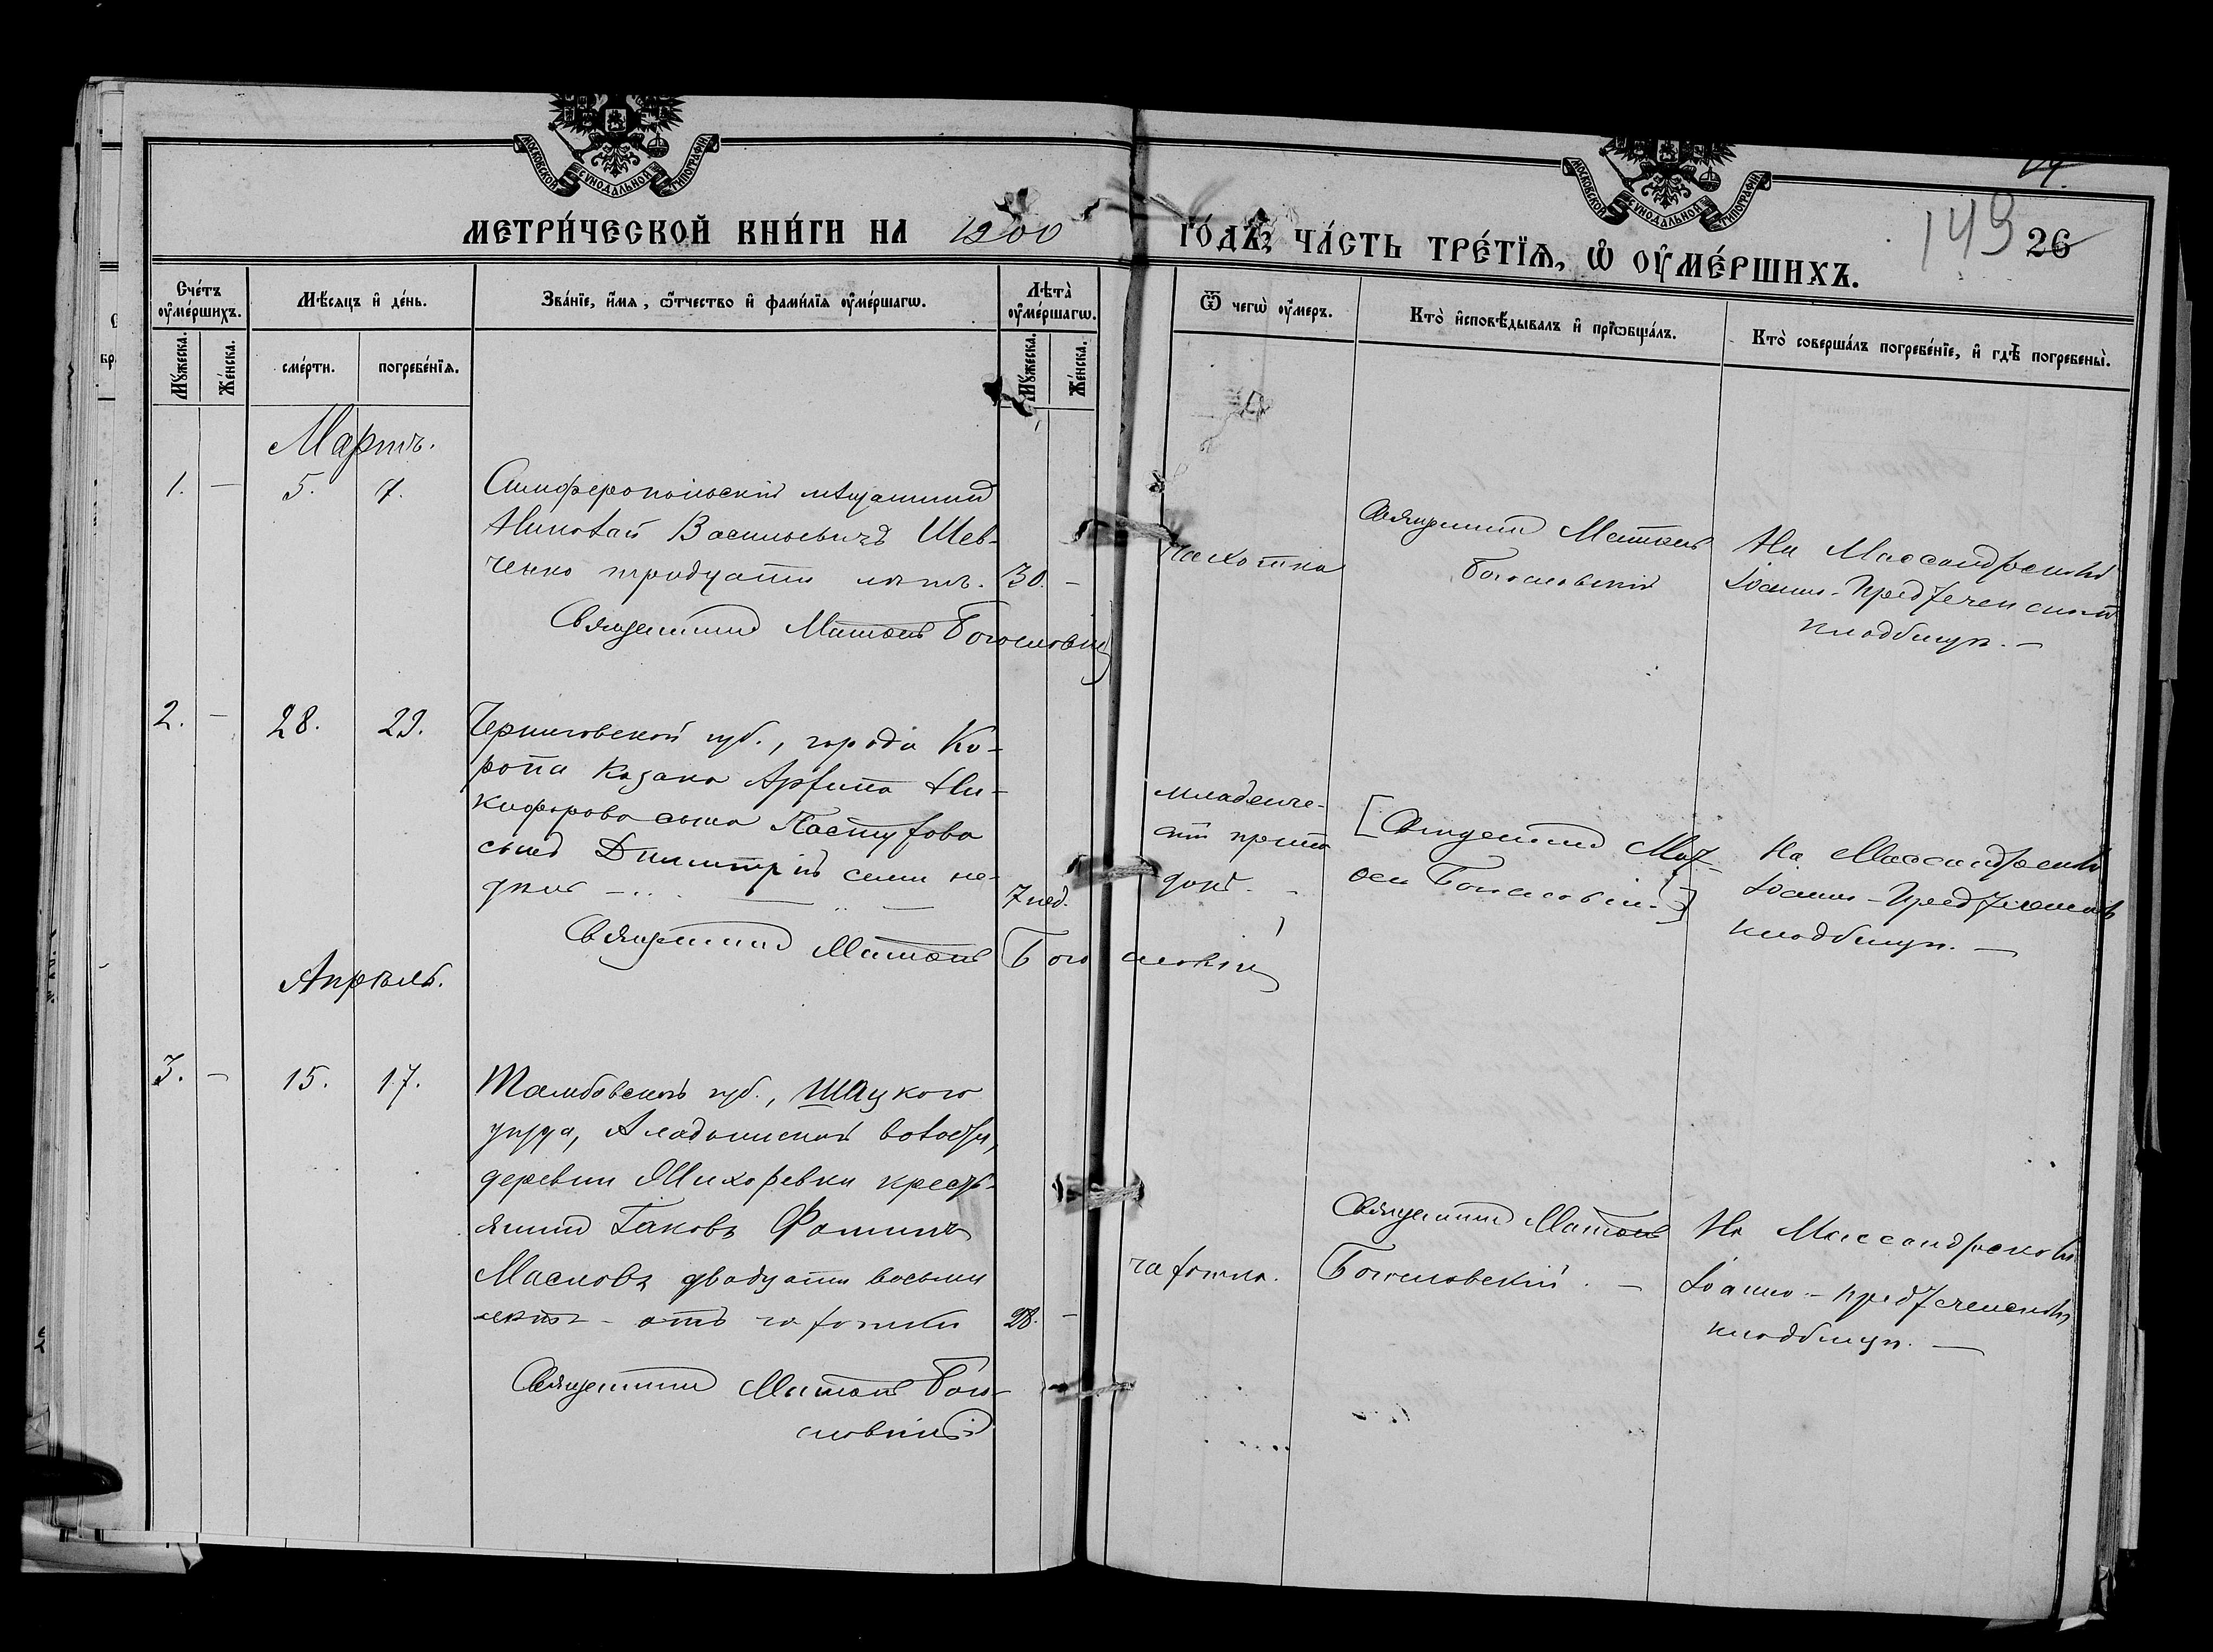 МОСКОВСКОЙ СѴНОДАЛЬНОЙ ТИПОГРАФІИ
МОСКОВСКОЙ СѴНОДАЛЬНОЙ ТИПОГРАФІИ
МЕТРИ́ЧЕСКОЙ КНИ́ГИ НА 1900 ГО́ДЪ, ЧА́СТЬ ТРЕ́ТІѦ, Ѡ ОУ҆МЕ́РШИХЪ.
149 26
Сче́тъ оу҆ме́ршихъ.
Мꙋ́жеска.
Же́нска.
Мѣ́сяцъ и҆ де́нь.
сме́рти.
погребе́нїѧ.
Зва́нїе, и҆́мѧ, ѻ҆́тчество и҆ фами́лїѧ оу҆ме́ршагѡ.
Лѣта̀ оу҆ме́ршагѡ.
Мꙋ́жеска.
Же́нска.
Ѿ чегѡ̀ оу҆́меръ.
Кто̀ и҆сповѣ́дывалъ и҆ прїѡбща́лъ.
Кто̀ соверша́лъ погребе́нїе, и҆ гдѣ̀ погребены̀.
Мартъ.
1. – 5. 7.
Симферопольскій мѣщанинъ
Николай Васильевичъ Шев-
ченко тридцати лѣтъ. 30. –
Священникъ Матѳей Богословскій
чахотка
Священникъ Матѳей
Богословскій
На Массандровскомъ
Іоанно-Предтеченскомъ
кладбищѣ. –
2. – 28. 29.
Черниговской губ., города Ко-
ропа казака Архипа Ни-
кифорова сына Пастухова
сынъ Димитрій семи не-
дѣль – 7 нед.
Священникъ Матѳей Богословскій
младенче-
[Священникъ Мат-
ѳей Богословскій.]
На Массандровскомъ
Іоанно-Предтеченскомъ
кладбищѣ. –
Апрѣль.
3. – 15. 17.
Тамбовской губ., Шацкого
уѣзда, Аладьинской волости,
деревни Михоревки кресть-
янинъ Іаковъ Фоминъ
Масловъ двадцати восьми
лѣтъ – отъ чахотки 28. –
Священникъ Матѳей Бого-
словскій
чахотка.
Священникъ Матѳей
Богословскій. –
На Массандровскомъ
Іоанно-Предтеченскомъ
кладбищѣ. –